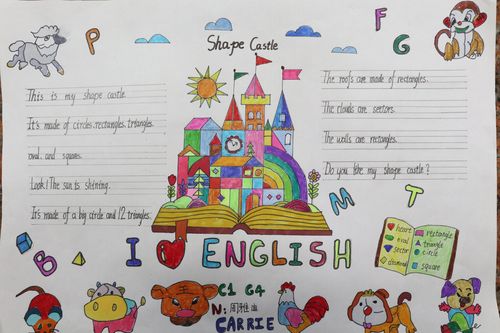 Shape Castle
P
F
G
This is my shape castle.
It's made of circles.rectangles.triangles.
oval. and squares.
Look! The sun is shining.
It's made of a big circle and 12 triangles.
The roofs are made of rectangles.
The clouds are sectors.
The walls are rectangles.
Do you like my shape castle?
M
T
B
I ENGLISH
heart
oval
sector
diamond
rectangle
triangle
circle
square
C1 G4
N:
CARRIE